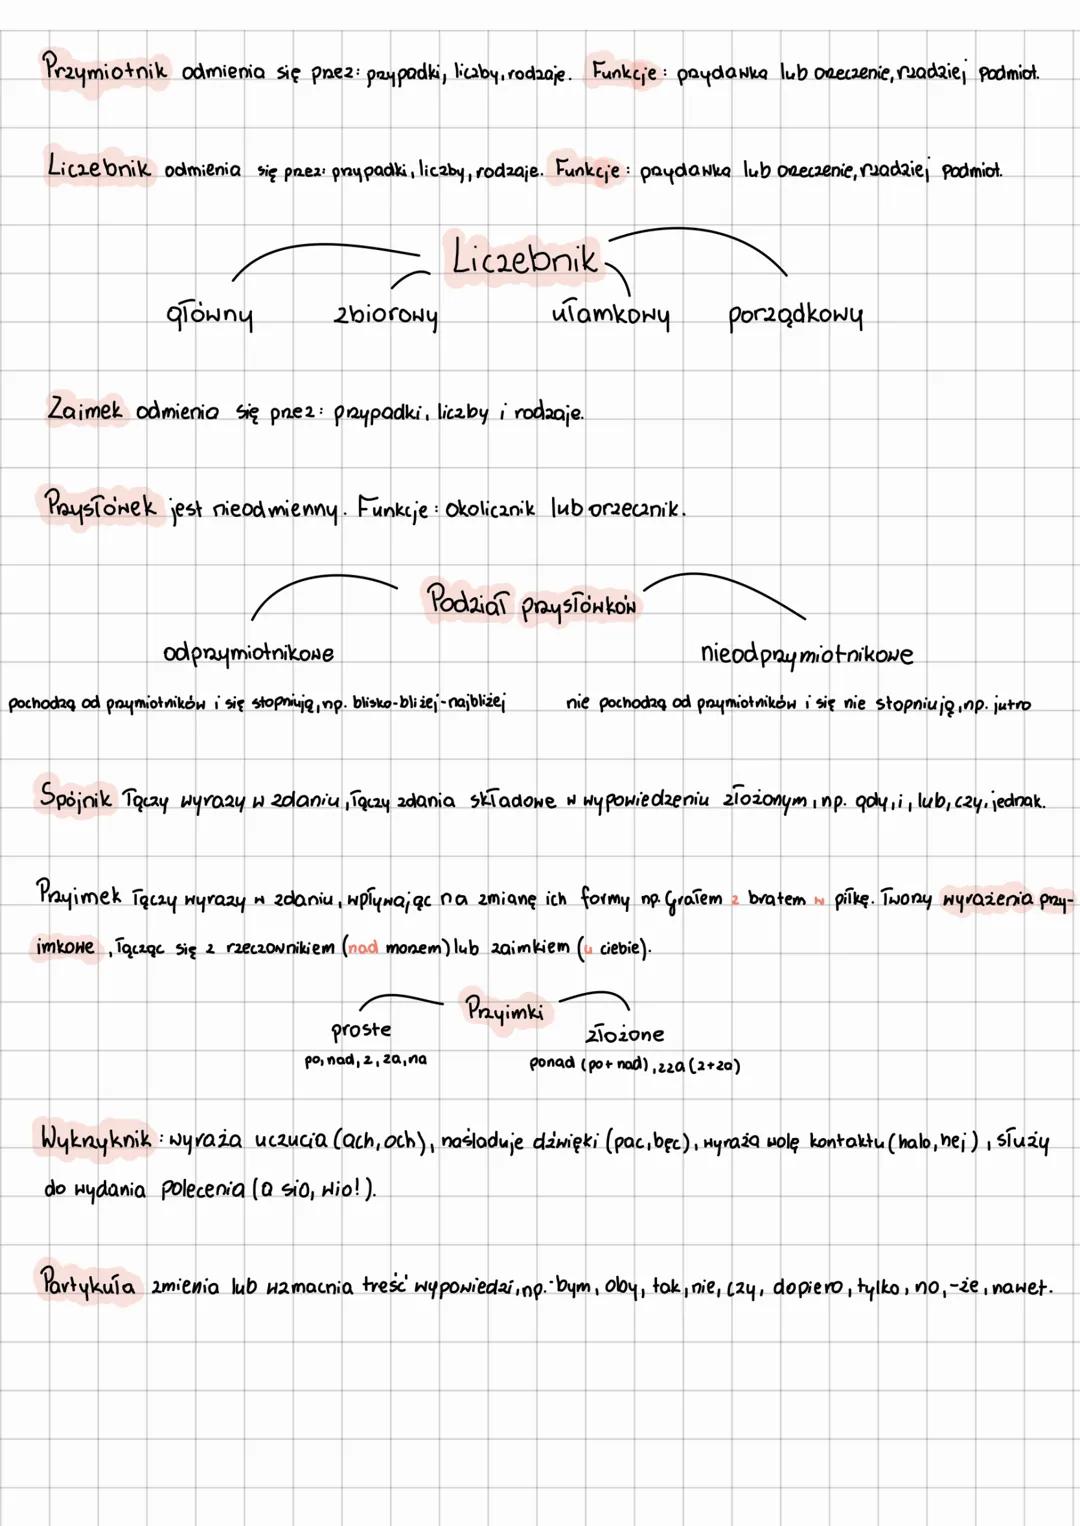 Przymiotnik odmienia się przez: przypadki, liczby, rodzaje. Funkcje: przydawka lub orzeczenie, rzadziej podmiot.
Liczebnik odmienia się przez: przypadki, liczby, rodzaje. Funkcje: przydawka lub orzeczenie, rzadziej podmiot.
Liczebnik
główny zbiorowy ułamkowy porządkowy
Zaimek odmienia się przez: przypadki, liczby i rodzaje.
Przysłówek jest nieodmienny. Funkcje: okolicznik lub orzecznik.
Podział przysłówków
odprzymiotnikowe nieodprzymiotnikowe
pochodzą od przymiotników i się stopniują, np. blisko-bliżej-najbliżej nie pochodzą od przymiotników i się nie stopniują, np. jutro
Spójnik łączy wyrazy w zdaniu, łączy zdania składowe w wypowiedzeniu złożonym, np. gdy, i, lub, czy, jednak.
Przyimek łączy wyrazy w zdaniu, wpływając na zmianę ich formy np. Grałem z bratem w piłkę. Tworzy wyrażenia przy-
imkowe, łącząc się z rzeczownikiem (nad morzem) lub zaimkiem (u ciebie).
Przyimki
proste złożone
po, nad, z, za, na ponad (po+ nad), zza (z+za)
Wykrzyknik: wyraża uczucia (ach, och), naśladuje dźwięki (pac, bęc), wyraża wolę kontaktu (halo, hej), służy
do wydania polecenia (a sio, wio!).
Partykuła zmienia lub wzmacnia treść wypowiedzi, np. -bym, oby, tak, nie, czy, dopiero, tylko, no, -że, nawet.